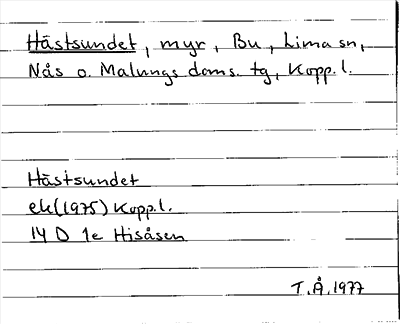 Hästsundet, myr, Bu, Lima sn,
Nås o. Malungs doms. tg, Kopp.l.
Hästsundet
ek(1975) Kopp.l.
14 D 1e Hisåsen
T.Å.1977